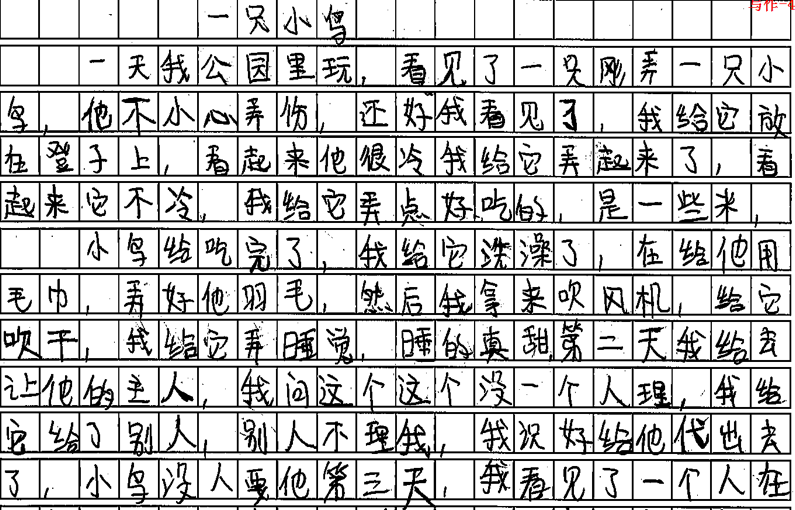 写作-4
一只小鸟
一天我公园里玩，看见了一只刚弄一只小
鸟，他不小心弄伤，还好我看见了，我给它放
在登子上，看起来他很冷我给它弄起来了，看
起来它不冷，我给它弄点好吃的，是一些米，
小鸟给吃完了，我给它洗澡了，在给他用
毛巾，弄好他羽毛，然后我拿来吹风机，给它
吹干，我给它弄睡觉，睡的真甜，第二天我给去
让他的主人，我问这个这个没一个人理，我给
它给了别人，别人不理我，我识好给他代出去
了，小鸟没人要他第三天，我看见了一个人在